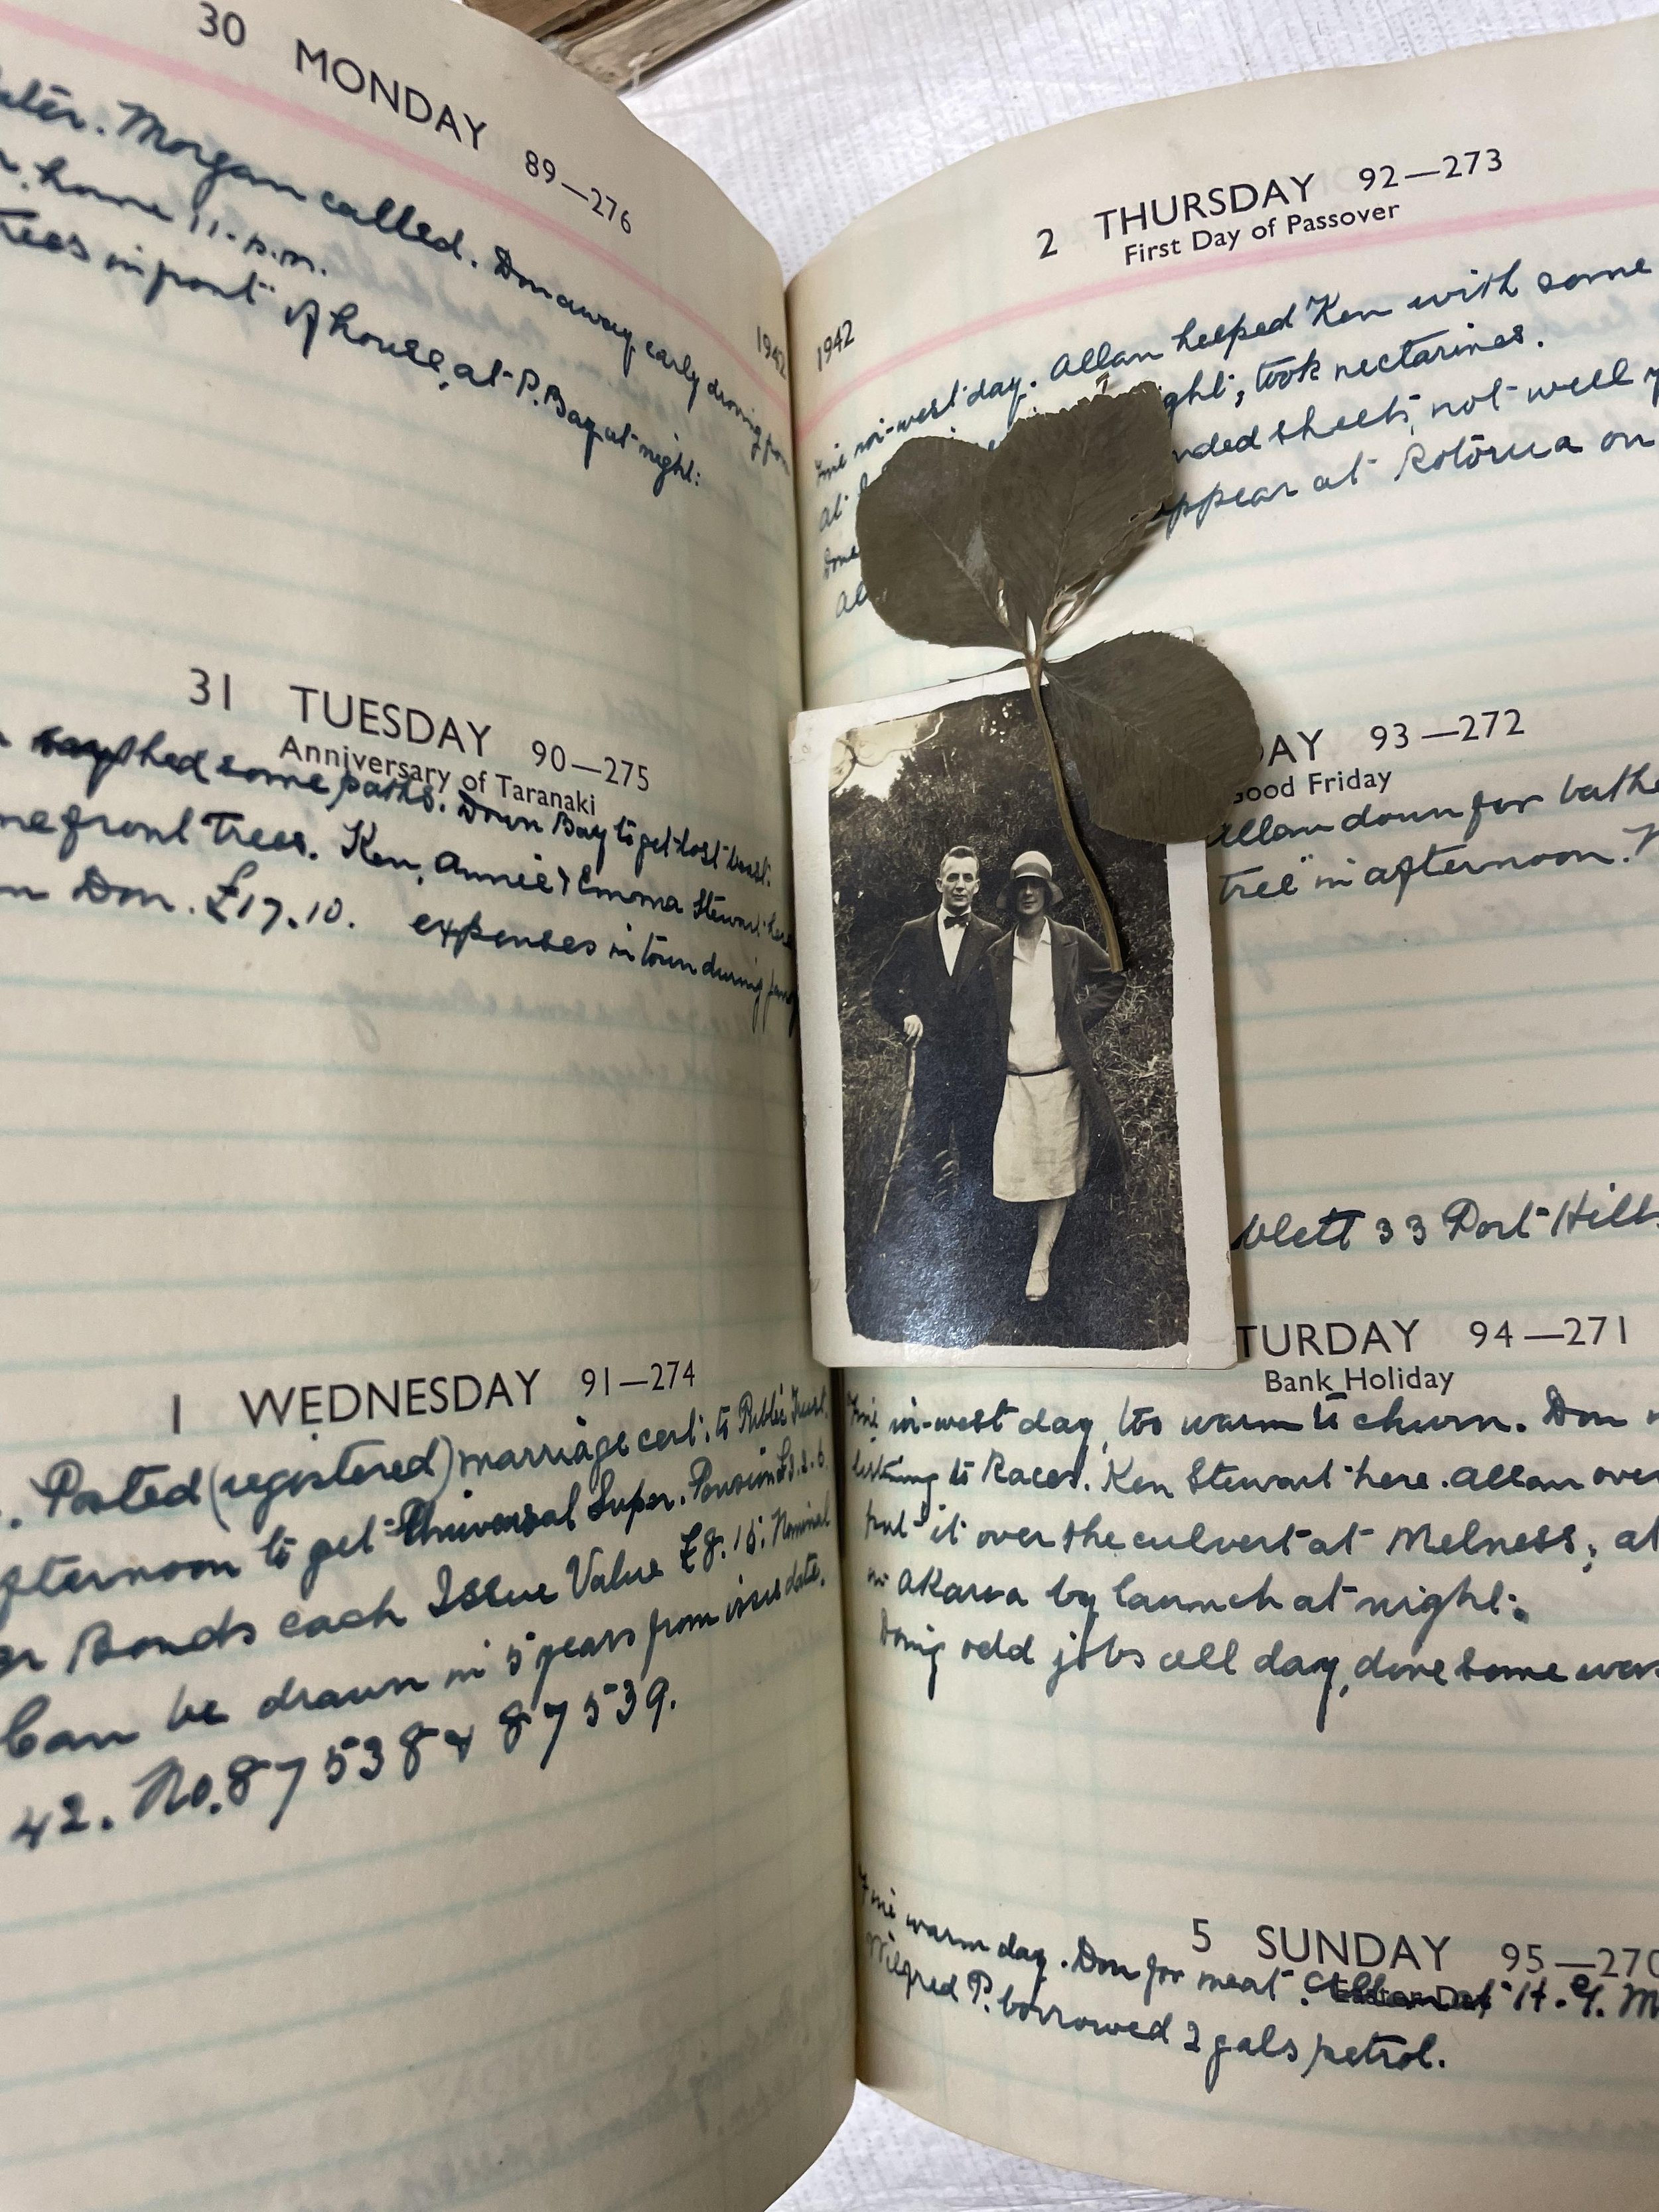 30 MONDAY 89—276
1942
Morgan called. Don away early driving from
home 11. p.m.
trees in front of house, at P. Bay at night.
31 TUESDAY 90—275
Anniversary of Taranaki
some paths. Down Bay to get lost boat.
front trees. Ken, Annie & Emma Stewart here
Don. £17.10. expenses in town during
1 WEDNESDAY 91—274
. Posted (registered) marriage cert: to Public Trust.
afternoon to get Universal Super. Pension £3.2.6.
Bonds each Issue Value £8.15. Nominal
Can be drawn in 5 years from issue date.
42. No. 87538 & 87539.
2 THURSDAY 92—273
First Day of Passover
1942
Fine nor-west day. Allan helped Ken with some
at ght; took nectarines.
Done nded sheets, not well
ppear at Rotorua on
DAY 93—272
Good Friday
Allan down for bathe
tree in afternoon.
blett 33 Port Hills
TURDAY 94—271
Bank Holiday
Fine nor-west day, too warm to churn. Don
listening to Races. Ken Stewart here. Allan over
put it over the culvert at Melness, at
in Akaroa by launch at night.
Doing odd jobs all day, done some
5 SUNDAY 95—270
Easter Day
Fine warm day. Don for meat. Allan at H. G. M
Wilfred P. borrowed 2 gals petrol.